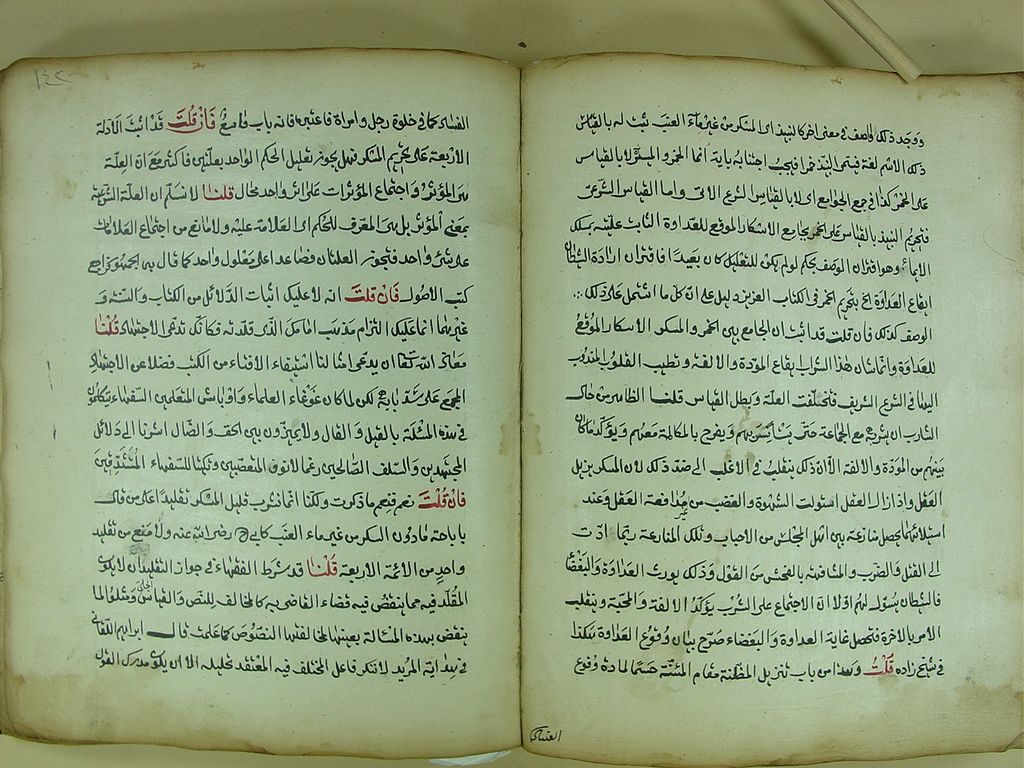 ووجد ذلك الوصف في معنى اخر كالنبيذ اى المسكر من غير ماء العنب ثبت له بالقياس
ذلك الاسم لغة فيسمى النبيذ خمرا فيجب اجتنابه بآية انما الخمر والميسر لا بالقياس
على الخمر كذا في جمع الجوامع اى لا بالقياس الشرعي الاتي واما القياس الشرعي
فتحريم النبيذ بالقياس على الخمر بجامع الاسكار الموقع للعداوة الثابت عليته بمسلك
الايماء وهو اقتران الوصف بحكم لو لم يكن للتعليل كان بعيدا فاقتران ارادة الشيطان
ايقاع العداوة الخ بتحريم الخمر في الكتاب العزيز دليل على ان كل ما اشتمل على ذلك
الوصف كذلك فان قلت قد اثبت ان الجامع بين الخمر والمسكر الاسكار الموقع
للعداوة وانما شان هذا الشراب ايقاع المودة والالفة وتطييب القلوب المندوب
اليها في الشرع الشريف فتخلفت العلة وبطل القياس قلنا الظاهر من حال
الشارب ان يشربه مع الجماعة حتى يستأنس بهم ويفرح بالمكالمة معهم ويؤكد ما كان
بينهم من المودة والالفة الا ان ذلك ينقلب في الاغلب الى ضد ذلك لان المسكر يزيل
العقل واذا زال العقل استولت الشهوة والغضب من غير مدافعة العقل وعند
استيلائهما تحصل منازعة بين اهل المجلس من الاحباب وتلك المنازعة ربما ادت
الى القتل والضرب والمشافهة بالفحش من القول وذلك يورث العداوة والبغضاء
فالشيطان يسول لهم اولا ان الاجتماع على الشرب يؤكد الالفة والمحبة وينقلب
الامر بالاخرة فتحصل غاية العداوة والبغضاء صرح ببيان وقوع العداوة هكذا
في شيخ زاده قلت وهذا من باب تنزيل المظنة مقام المئنة حسما لمادة وقوع
الفساد
١٤٢
الفساد كما في خلوة رجل وامراة فاعتبره فانه باب واسع فان قلت قد اثبت الادلة
الاربعة على تحريم المسكر فهل يجوز تعليل الحكم الواحد بعلتين فاكثر مع ان العلة
هى المؤثر واجتماع المؤثرات على اثر واحد محال قلنا لا نسلم ان العلة الشرعية
بمعنى المؤثر بل هى المعرف للحكم اى العلامة عليه ولا مانع من اجتماع العلامات
على شئ واحد فتجوز العلتان فصاعدا على معلول واحد كما قال به الجمهور راجع
كتب الاصول فان قلت انه لا عليك اثبات الدلائل من الكتاب والسنة و
غيرهما انما عليك التزام مذهب امامك الذى قلدته فكانك تدعى الاجتهاد قلنا
معاذ الله تعالى ان يدعى امثالنا استيفاء الافتاء من الكتب فضلا عن الاجتهاد
المجمع على سد بابه لكن لما كان غوغاء العلماء واوباش المتعلمين السفهاء يتكلمون
في هذه المسئلة بالقيل والقال ولا يميزون بين المحق والضال اشرنا الى دلائل
المجتهدين والسلف الصالحين رغما لانوف المتعصبين وتبكيتا للسفهاء المتشدقين
فان قلت نعم فنعم ما ذكرت ولكنا انما نشرب قليل المسكر تقليدا على من قال
باباحته ما دون السكر من غير ماء العنب كابى ح رضى الله عنه ولا منع من تقليد
واحد من الائمة الاربعة قلنا قد شرط الفقهاء في جواز التقليد ان لا يكون
المقلد فيه مما ينقض فيه قضاء القاضى به كالمخالف للنص والقياس الجلى ومثلوا لما
ينقض بهذه المسئلة بعينها لمخالفتها النصوص كما علمت قال ابراهيم اللقانى
في هداية المريد لا ننكر فاعل المختلف فيه المعتقد تحليله الا ان يكون مدرك القول